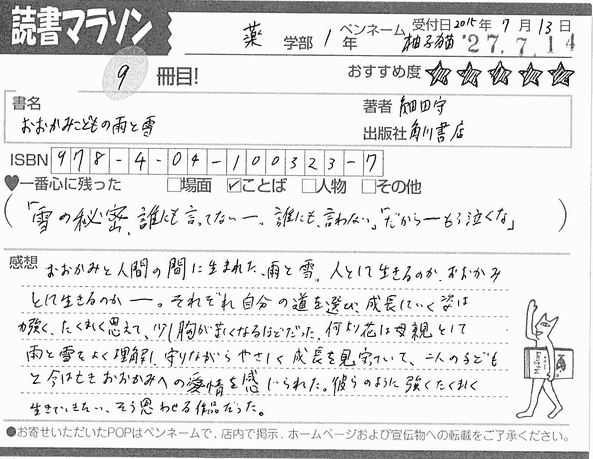 読書マラソン
薬 学部 1 年 ペンネーム 柚子猫 受付日 2015年 7月 13日
'27.7.14
9 冊目! おすすめ度 ★★★★★
書名 おおかみこどもの雨と雪
著者 細田守
出版社 角川書店
ISBN 978-4-04-100323-7
♥一番心に残った □場面 ☑ことば □人物 □その他
(「雪の秘密、誰にも言ってない―。誰にも、言わない。」「だから―もう泣くな」)
感想 おおかみと人間の間に生まれた、雨と雪。人として生きるのか、おおかみ
として生きるのか―。それぞれ自分の道を選び、成長していく姿は
力強く、たくましく思えて、少し胸が苦しくなるほどだった。何より花は母親として
雨と雪をよく理解し、守りながらやさしく成長を見守っていて、二人の子ども
と今は亡きおおかみへの愛情を感じられた。彼らのように強くたくましく
生きていきたい、そう思わせる作品だった。
●お寄せいただいたPOPはペンネームで、店内で掲示、ホームページおよび宣伝物への転載をご了承ください。